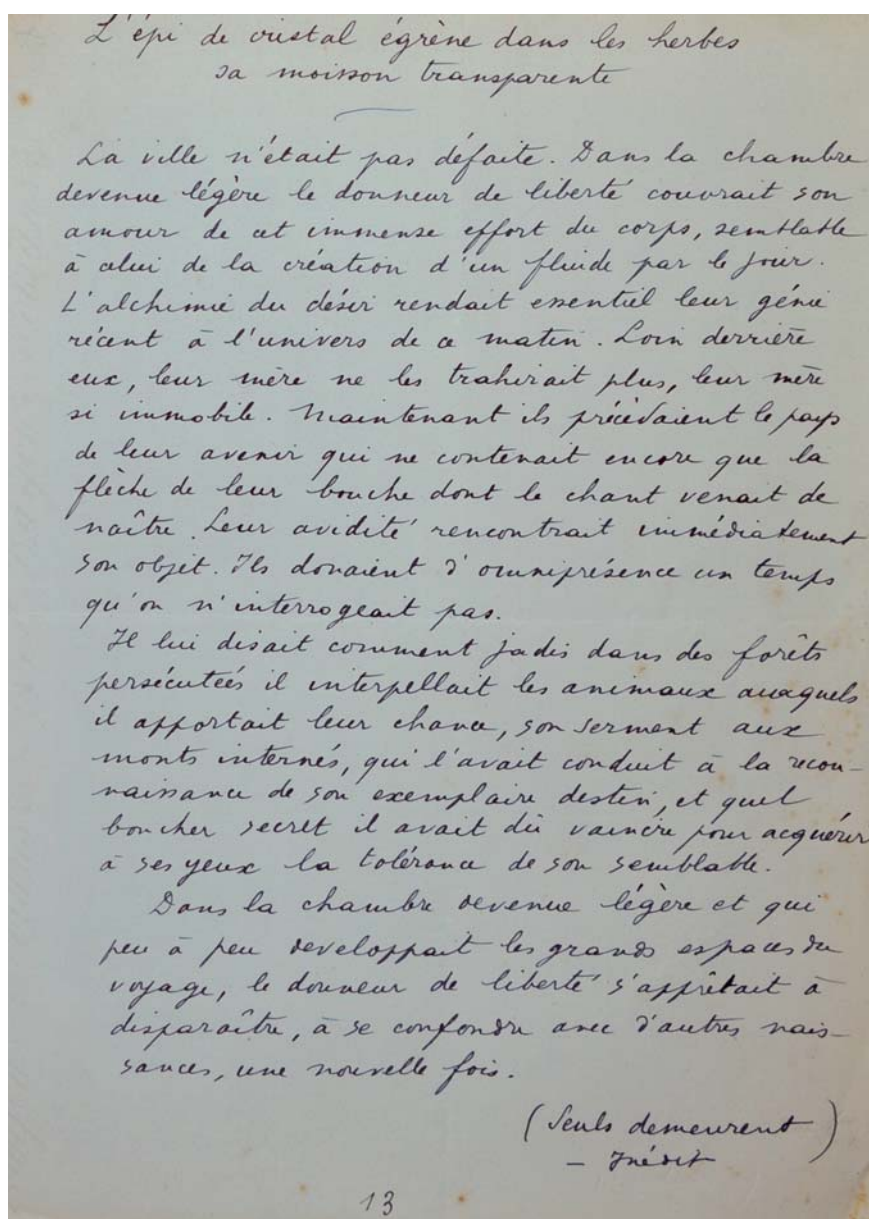 L'épi de cristal égrène dans les herbes
sa moisson transparente
La ville n'était pas défaite. Dans la chambre
devenue légère le donneur de liberté couvrait son
amour de cet immense effort du corps, semblable
à celui de la création d'un fluide par le jour.
L'alchimie du désir rendait essentiel leur génie
récent à l'univers de ce matin. Loin derrière
eux, leur mère ne les trahirait plus, leur mère
si immobile. Maintenant ils précédaient le pays
de leur avenir qui ne contenait encore que la
flèche de leur bouche dont le chant venait de
naître. Leur avidité rencontrait immédiatement
son objet. Ils douaient d'omniprésence un temps
qu'on n'interrogeait pas.
Il lui disait comment jadis dans des forêts
persécutées il interpellait les animaux auxquels
il apportait leur chance, son serment aux
monts internés, qui l'avait conduit à la recon-
naissance de son exemplaire destin, et quel
boucher secret il avait dû vaincre pour acquérir
à ses yeux la tolérance de son semblable.
Dans la chambre devenue légère et qui
peu à peu developpait les grands espaces du
voyage, le donneur de liberté s'apprêtait à
disparaître, à se confondre avec d'autres nais-
sances, une nouvelle fois.
(Seuls demeurent)
- Inédit
13